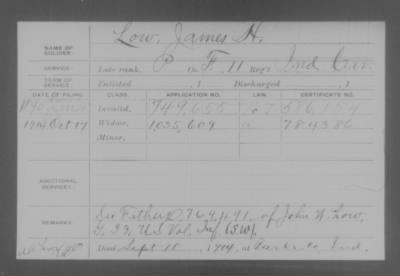 Low, James H.
NAME OF SOLDIER:
SERVICE: Late rank, P Co. F, 11 Reg't Ind Cav.
TERM OF SERVICE: Enlisted , 1 Discharged , 1
DATE OF FILING. CLASS. APPLICATION NO. LAW. CERTIFICATE NO.
Invalid, 749,655
1914 Oct 17 Widow, 1035,609 784386
Minor,
ADDITIONAL SERVICES:
REMARKS: See Father O. 769,491 of John W. Low,
G. 33, U.S. Vol. Inf. (S.W.).
Died Sept 1914, at Ind.